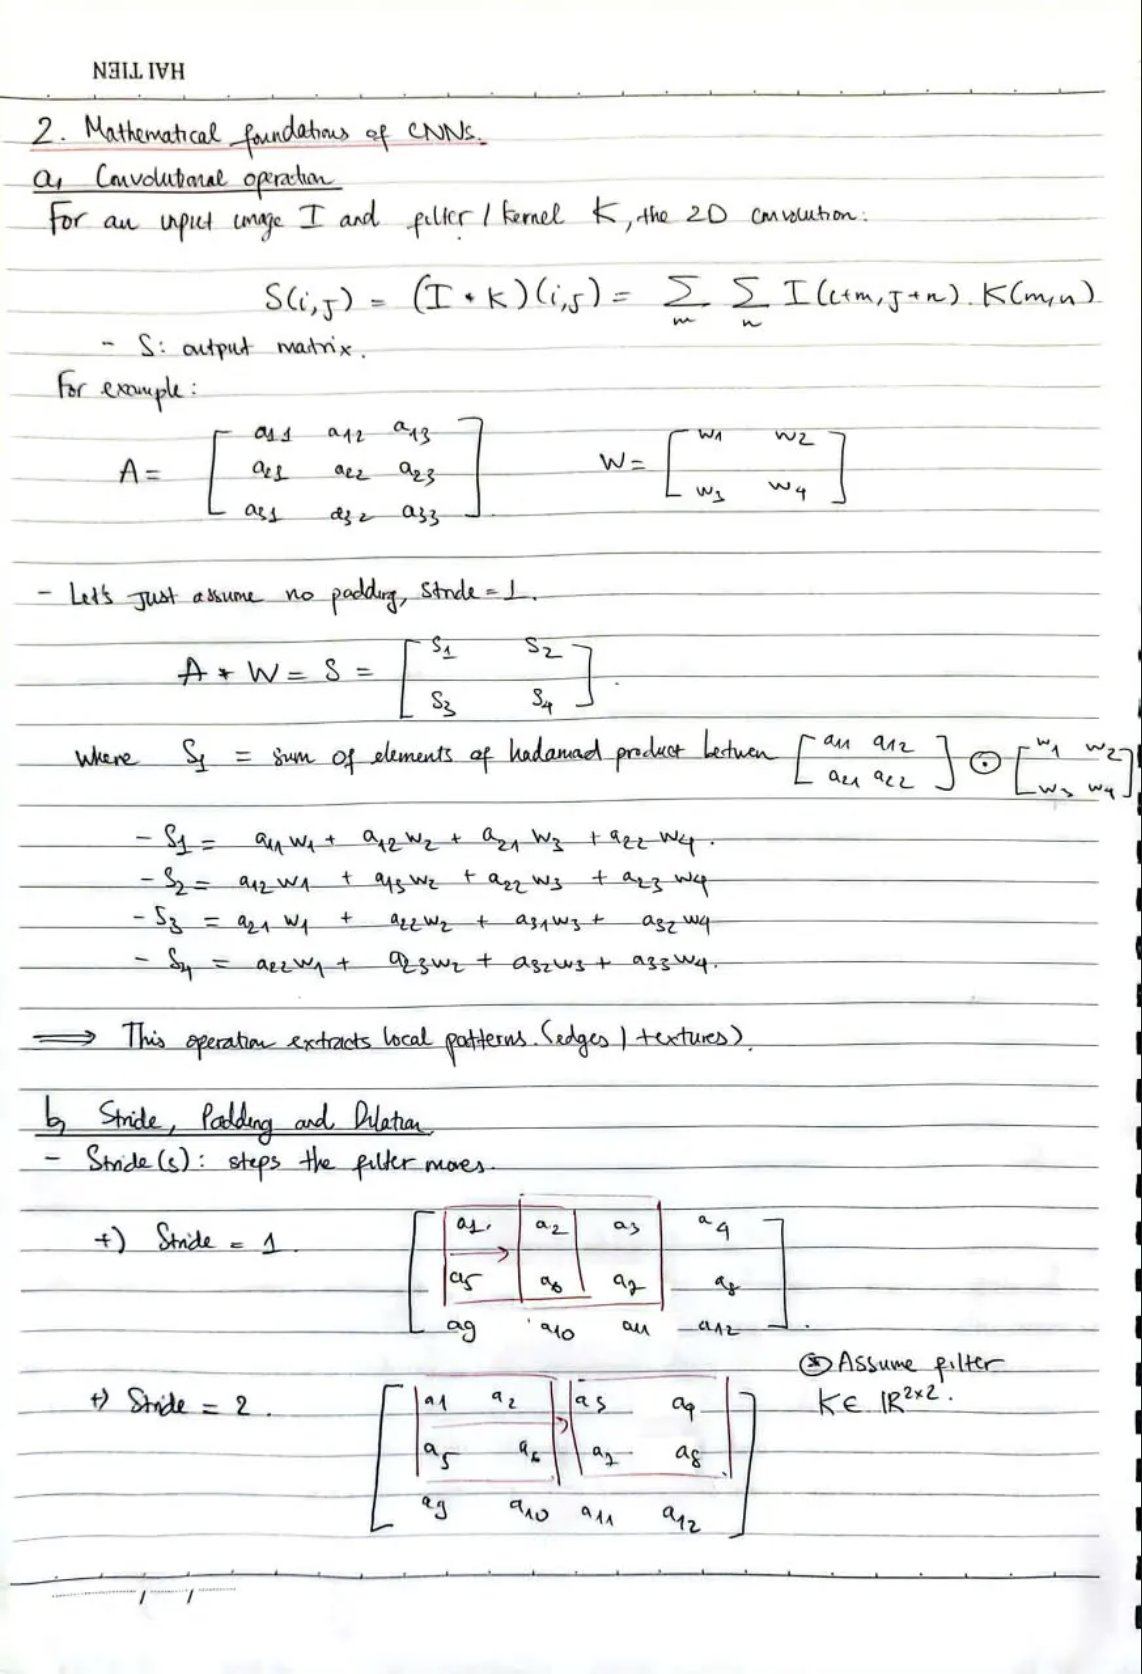 HAI TIEN
2. Mathematical foundations of CNNs.
a, Convolutional operation
For an input image I and filter / kernel K, the 2D convolution:
S(i,j) = (I * K)(i,j) = Σ_m Σ_n I(i+m, j+n). K(m,n)
- S: output matrix.
For example:
A = [ a11 a12 a13 ; a21 a22 a23 ; a31 a32 a33 ] W = [ w1 w2 ; w3 w4 ]
- Let's just assume no padding, stride = 1.
A * W = S = [ S1 S2 ; S3 S4 ].
where S1 = sum of elements of hadamad product betwen [ a11 a12 ; a21 a22 ] ⊙ [ w1 w2 ; w3 w4 ]
- S1 = a11 w1 + a12 w2 + a21 w3 + a22 w4.
- S2 = a12 w1 + a13 w2 + a22 w3 + a23 w4
- S3 = a21 w1 + a22 w2 + a31 w3 + a32 w4
- S4 = a22 w1 + a23 w2 + a32 w3 + a33 w4.
⟹ This operation extracts local patterns. (edges / textures).
b, Stride, Padding and Dilation
- Stride (s): steps the filter moves.
+) Stride = 1. [ a1 a2 a3 a4 ; a5 a6 a7 a8 ; a9 a10 a11 a12 ].
⊛ Assume filter
K ∈ ℝ^2×2.
+) Stride = 2. [ a1 a2 a3 a4 ; a5 a6 a7 a8 ; a9 a10 a11 a12 ]
/ /